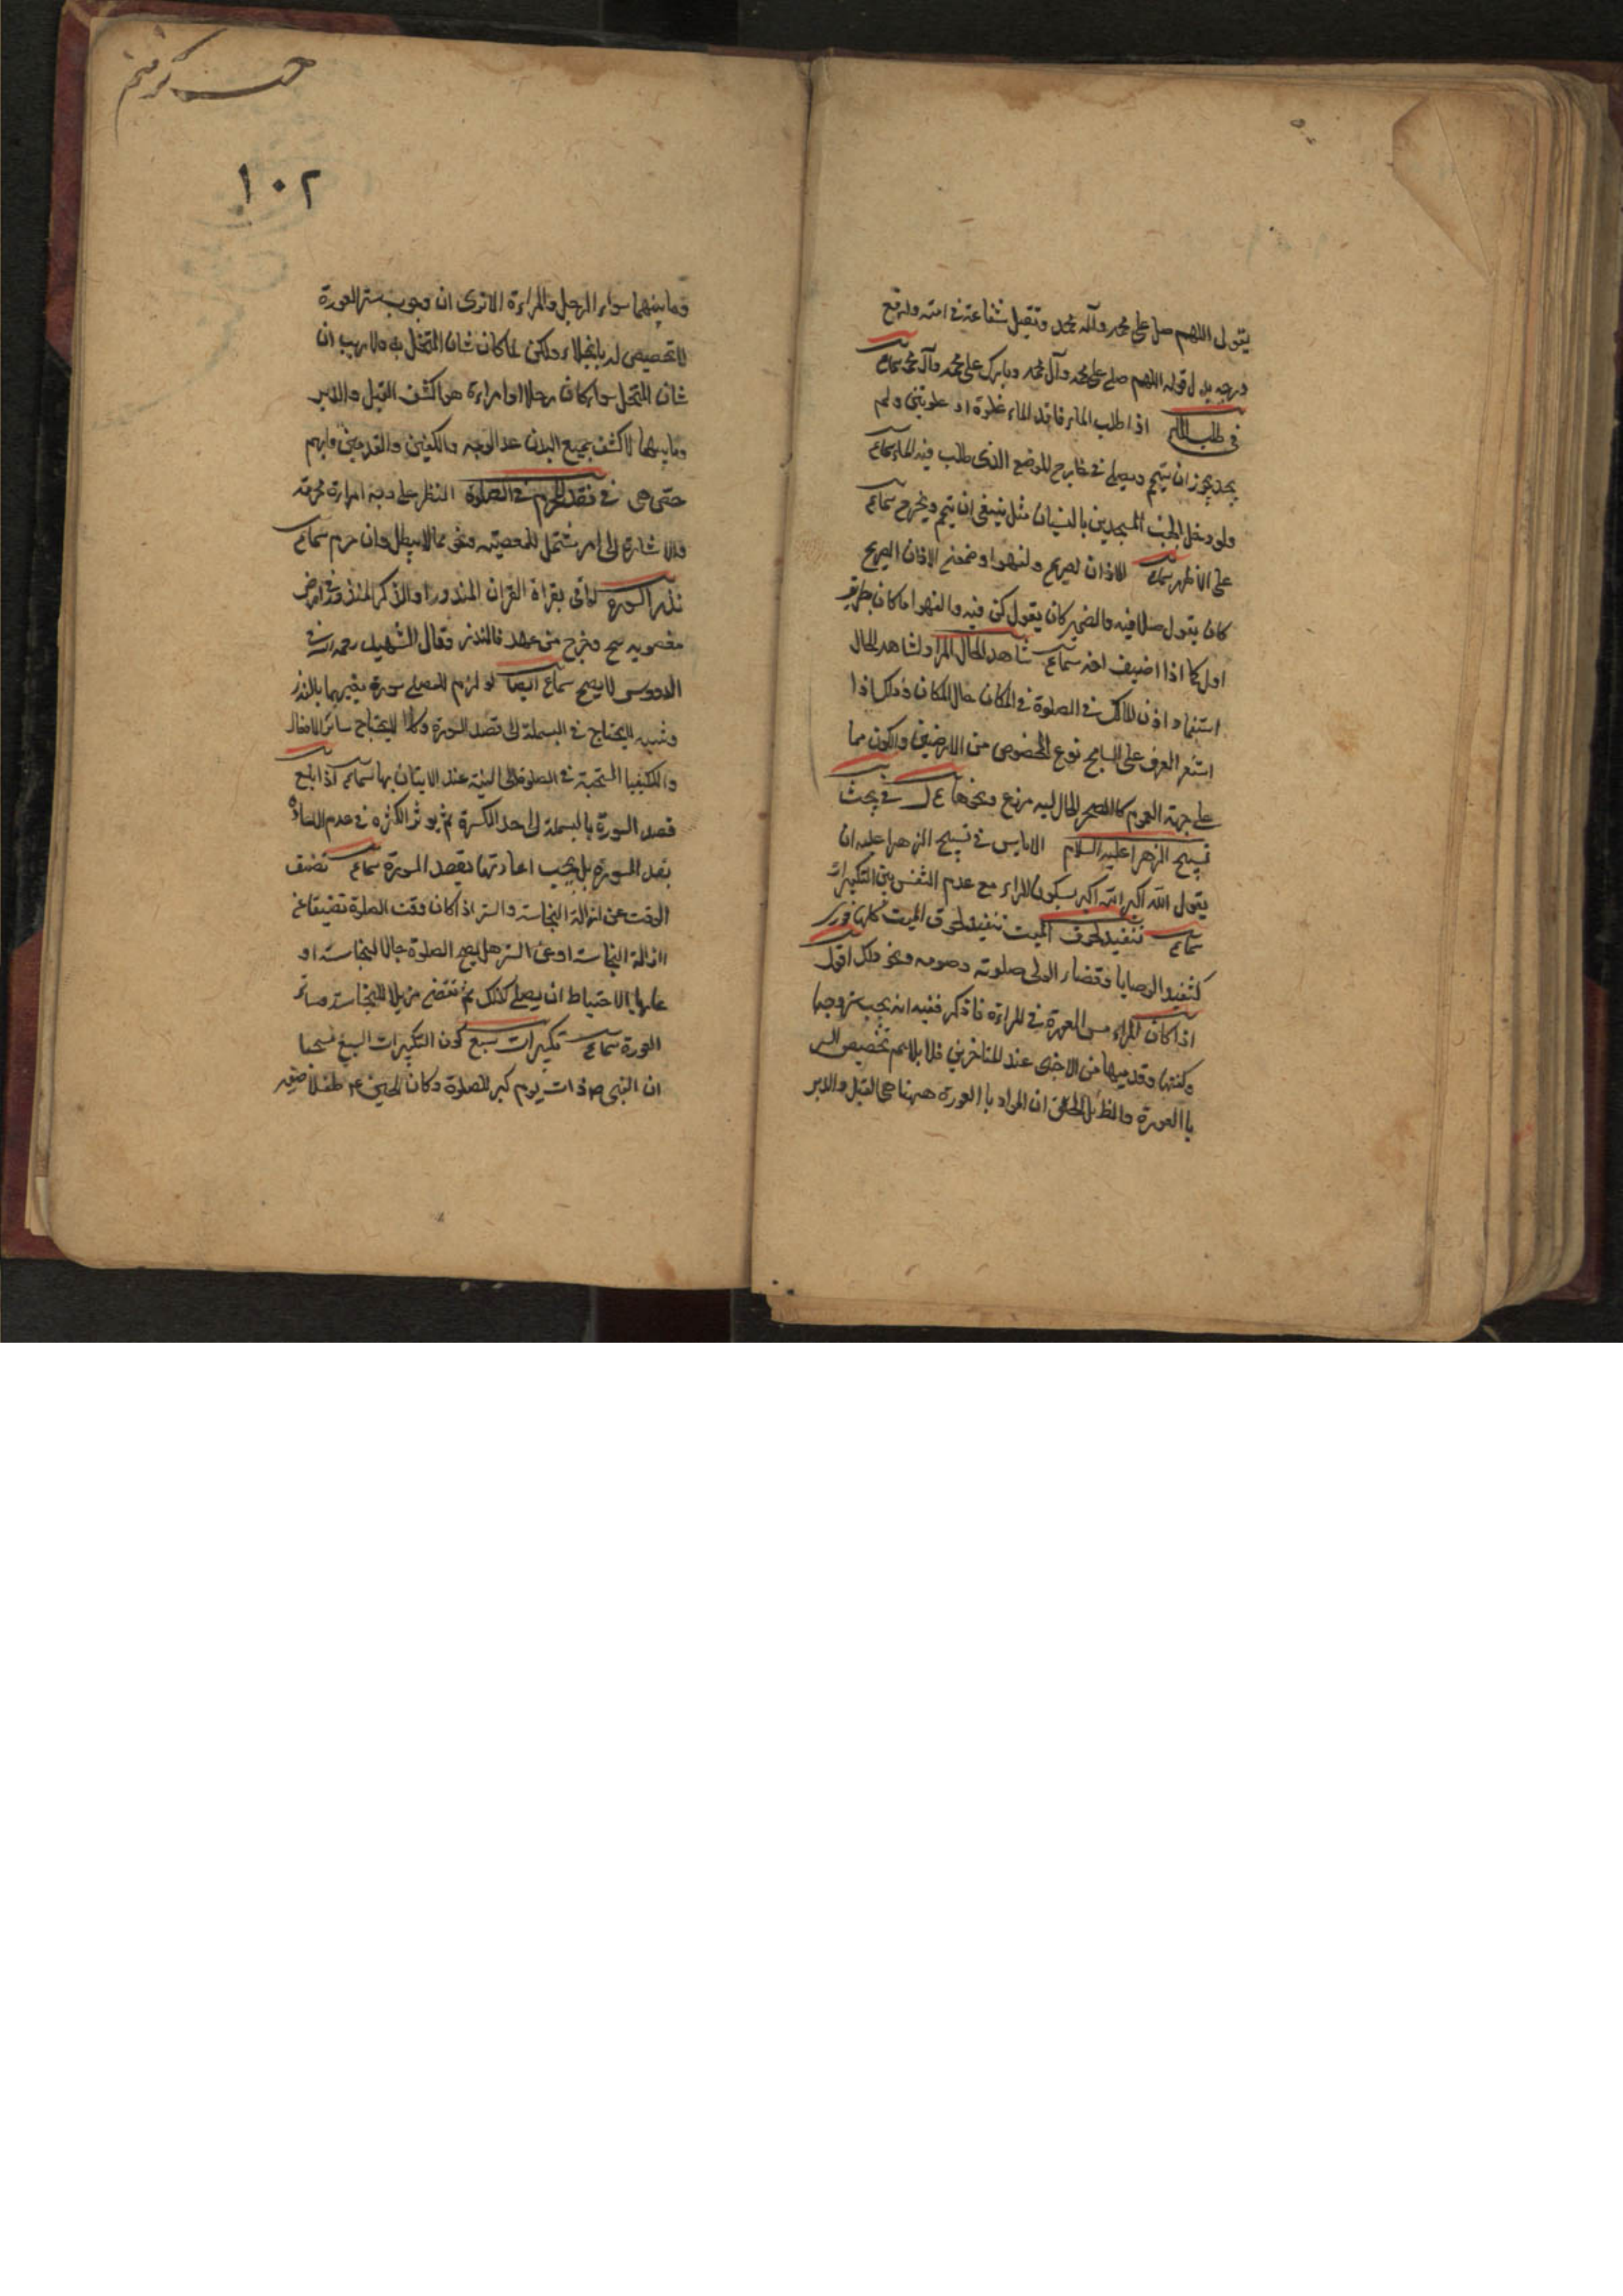 يقول اللهم صل على محمد وآله محمد وتقبل شفاعته في امته وارفع
درجته بدل قوله اللهم صلى على محمد وآل محمد وبارك على محمد وآل محمد سماع
في طلب الماء اذا طلب الماء فاقد الماء غلوة او غلوتين ولم
يجد يجوز ان يتيمم ويصلى في خارج الموضع الذى طلب فيه الماء سماع
ولو دخل الجنب المسجدين بالنسيان مثل ينبغى ان يتيمم ويخرج سماع
على الاظهر سماع للاذان لصريح ولفهوا وضمنى الاذان الصريح
كان يقول صلا فيه والضمير كان يقول كن فيه والفهوا ما كان بطريق
اولى كما اذا اضيف احد سماع شاهد الحال المراد لشاهد الحال
استفهاد اذن المالك في الصلوة في المكان حال المكان وذلك اذا
استقر العرف على السامح نوع المخصوص من الارضين والكون مما
على جهة العموم كالصحر الحال ليه مزرع ونحوها ع ل في بحث
تسبيح الزهرا عليه السلام الاباس في تسبيح الزهرا عليه ان
يقول الله اكبر الله اكبر بسكون الراء مع عدم التنفس بين التكبيرات
سماع تنفيذ لحوق الميت تنفيذ لحوق الميت كلها فورى
كتنفيذ الوصايا وقضاء الولى صلوته وصومه ونحو ذلك اقول
اذا كان المراء من العورة في المراءة فاذكر ففيه انه يجب ستر وجهها
وكفيها وقدميها من الاجنبى عند المتاخرين فلا بلايم تخصيص الستر
با العورة والظاهر ان المراد با العورة ههنا هى القبل والدبر
حسن كرفتم
١٠٢
وما بينهما سواء الرجل والمراءة الا ترى ان وجوب ستر العورة
لا تخصيص له بابخلاء ولكن لما كان شان المتخلى به ولا ريب ان
شان المتخلى سواء كان رجلا او امراءة هو كشف القبل والدبر
وما بينهما لا كشف جميع البدن عد الوجه والكفين والقدمين فافهم
حتى هى في فقد المحرم في الصلوة النظر على وجه امراءة محرمة
والاشارة الى امر مشتمل للمعصية ونحو مما لا يبطل وان حرم سماع
نذر السورة لو اتى بقراة القران المنذور او الذكر المنذور في ارض
مغصوبه صح وخرج من عهد فالنذر وقال الشهيد رحمه الله في
الدروس لا يصح سماع ايضا لو لزم المصلى سورة بغيرها بالنذر
وشبه اليحتاج في البسملة الى قصد السورة وكذا اليحتاج سائر الافعال
والكيفيا المستحبة في الصلوة الى النية عند الايتان بها سماع اذا بلغ
قصد السورة بالبسملة الى حد الكسرة ثم يوثر الكثرة في عدم الفساد
بقد السورة بل يجب اعادتها بقصد السورة سماع تضيق
الوقت عن ازالة النجاسة والستر اذا كان وقت الصلوة تضيقا عن
ازالة النجاسة او عن الستر هل يصح الصلوة حال النجاسة او
عاريا الاحتياط ان يصلى كذلك ثم تقضى مزيلا للنجاسة وساتر
العورة سماع تكبيرات سبع كون التكبيرات السبع مستحبا
ان النبى ص ذات يوم كبر للصلوة وكان الحسين ع طفلا صغير